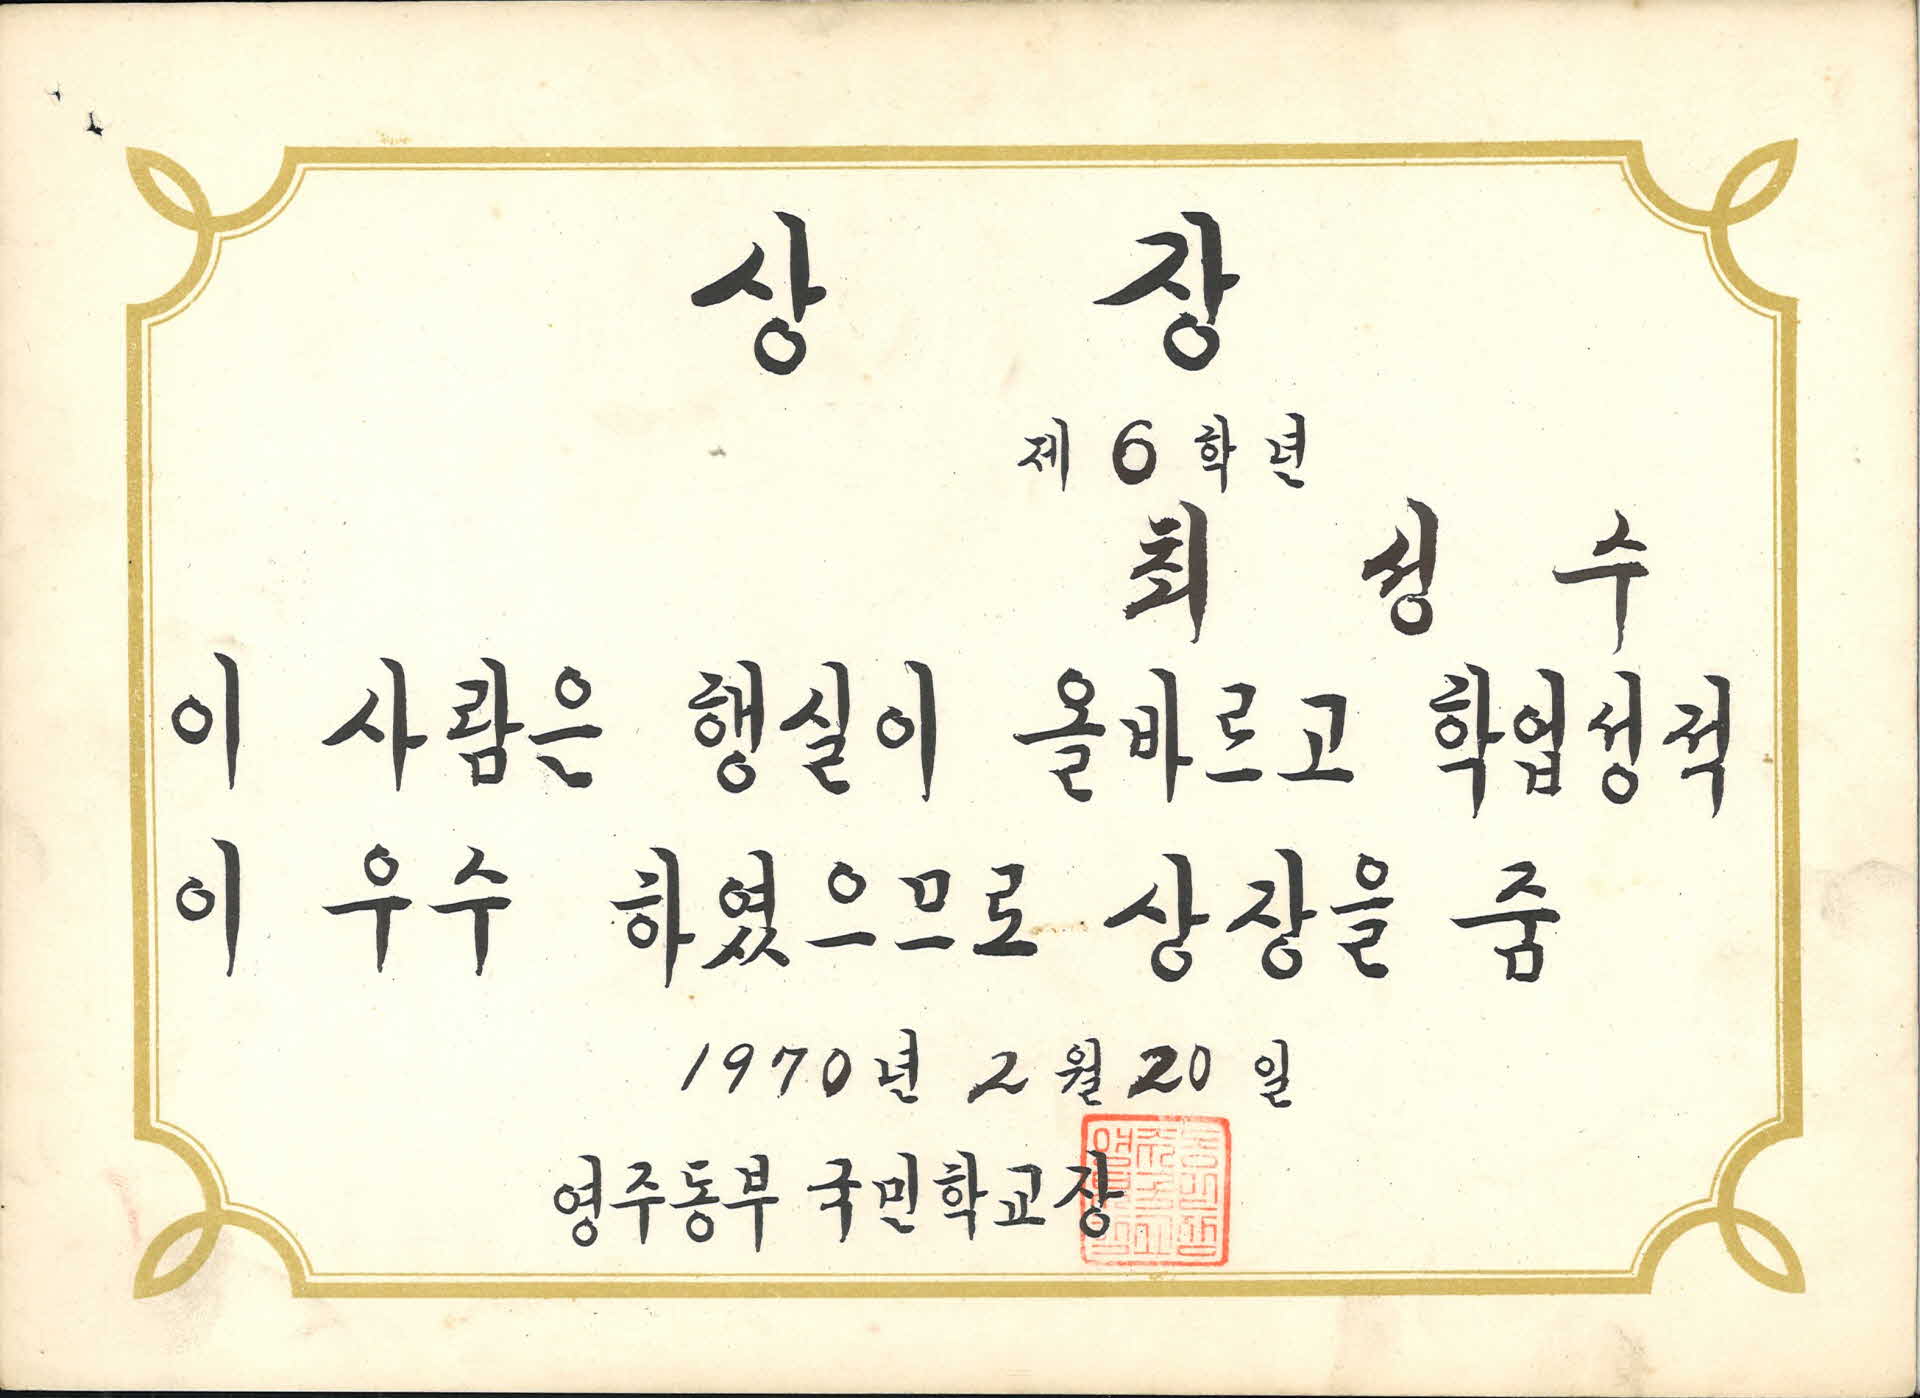 상 장
제 6 학년
최 성 수
이 사람은 행실이 올바르고 학업성적
이 우수 하였으므로 상장을 줌
1970년 2월 20일
영주동부 국민학교장